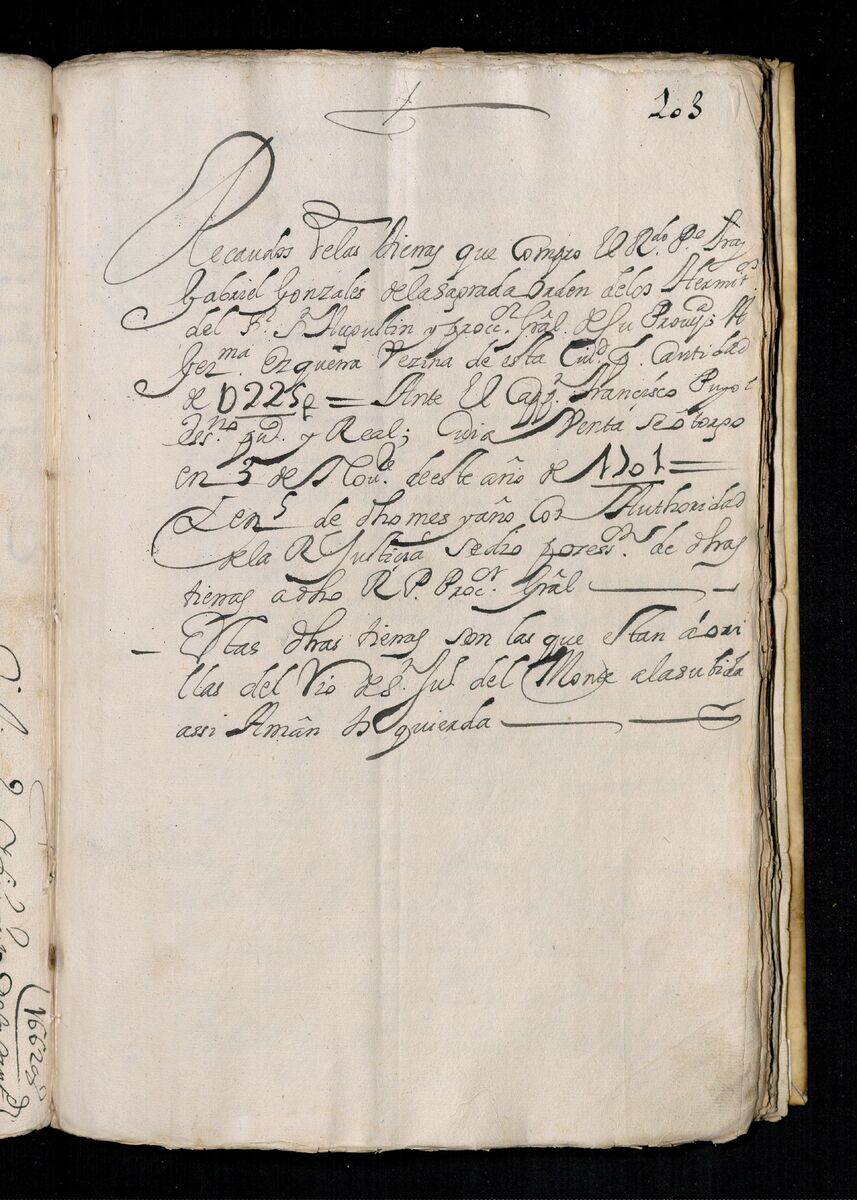 103
Recaudos de las tierras que Compro El R.do P.e fray
Gabriel Gonzales de la Sagrada orden de los Hermit.os
del S.r S. Augustin y procc.or Grâl. de su Prou.a; A
Ger.ma Ezquerra Vezina de esta Ciu.d p.r Cantidad
de U225 p = Ante El Cap.n Francisco
es.no pu.co y Real; Cuia Venta se otorgo
en 5 de Nou.e de este año de 1701 =
Y en 5 de dho mes y año con Authoridad
de la R Justicia se dio posess.n de dhas
tierras a dho R P. Proc.or Grâl
Estas dhas tierras son las que estan á ori
llas del Rio de S. Ju.o del Monte a la subida
assi A man Yzquierda